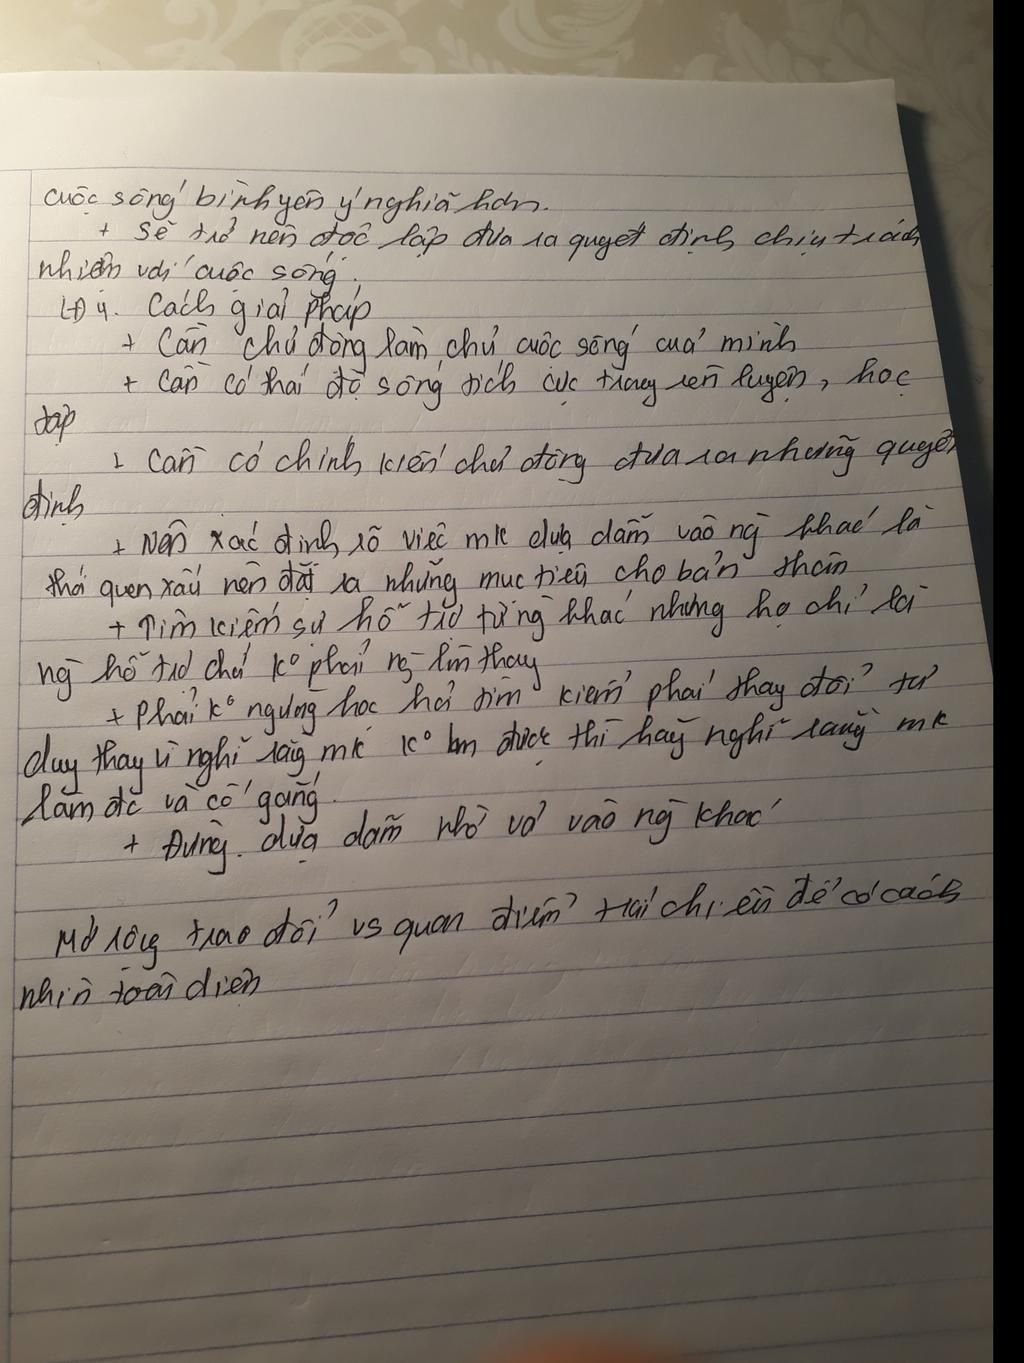 cuộc sống bình yên ý nghĩa hơn.
+ Sẽ trở nên độc lập đưa ra quyết định chịu trách
nhiệm với cuộc sống.
LĐ 4. Cách giải pháp
+ Cần chủ động làm chủ cuộc sống của mình
+ Cần có thái độ sống tích cực trong rèn luyện, học
tập
+ Cần có chính kiến chủ động đưa ra những quyết
định
+ Nên xác định rõ việc mk dựa dẫm vào ng khác là
thói quen xấu nên đặt ra những mục tiêu cho bản thân
+ Tìm kiếm sự hỗ trợ từ ng khác nhưng họ chỉ là
ng hỗ trợ chứ k° phải ng lm thay
+ Phải k° ngừng học hỏi tìm kiếm phải thay đổi tư
duy thay vì nghĩ rằng mk k° lm được thì hãy nghĩ rằng mk
làm đc và cố gắng.
+ Đừng dựa dẫm nhờ vả vào ng khác
Mở rộng trao đổi vs quan điểm trái chiều để có cách
nhìn toàn diện